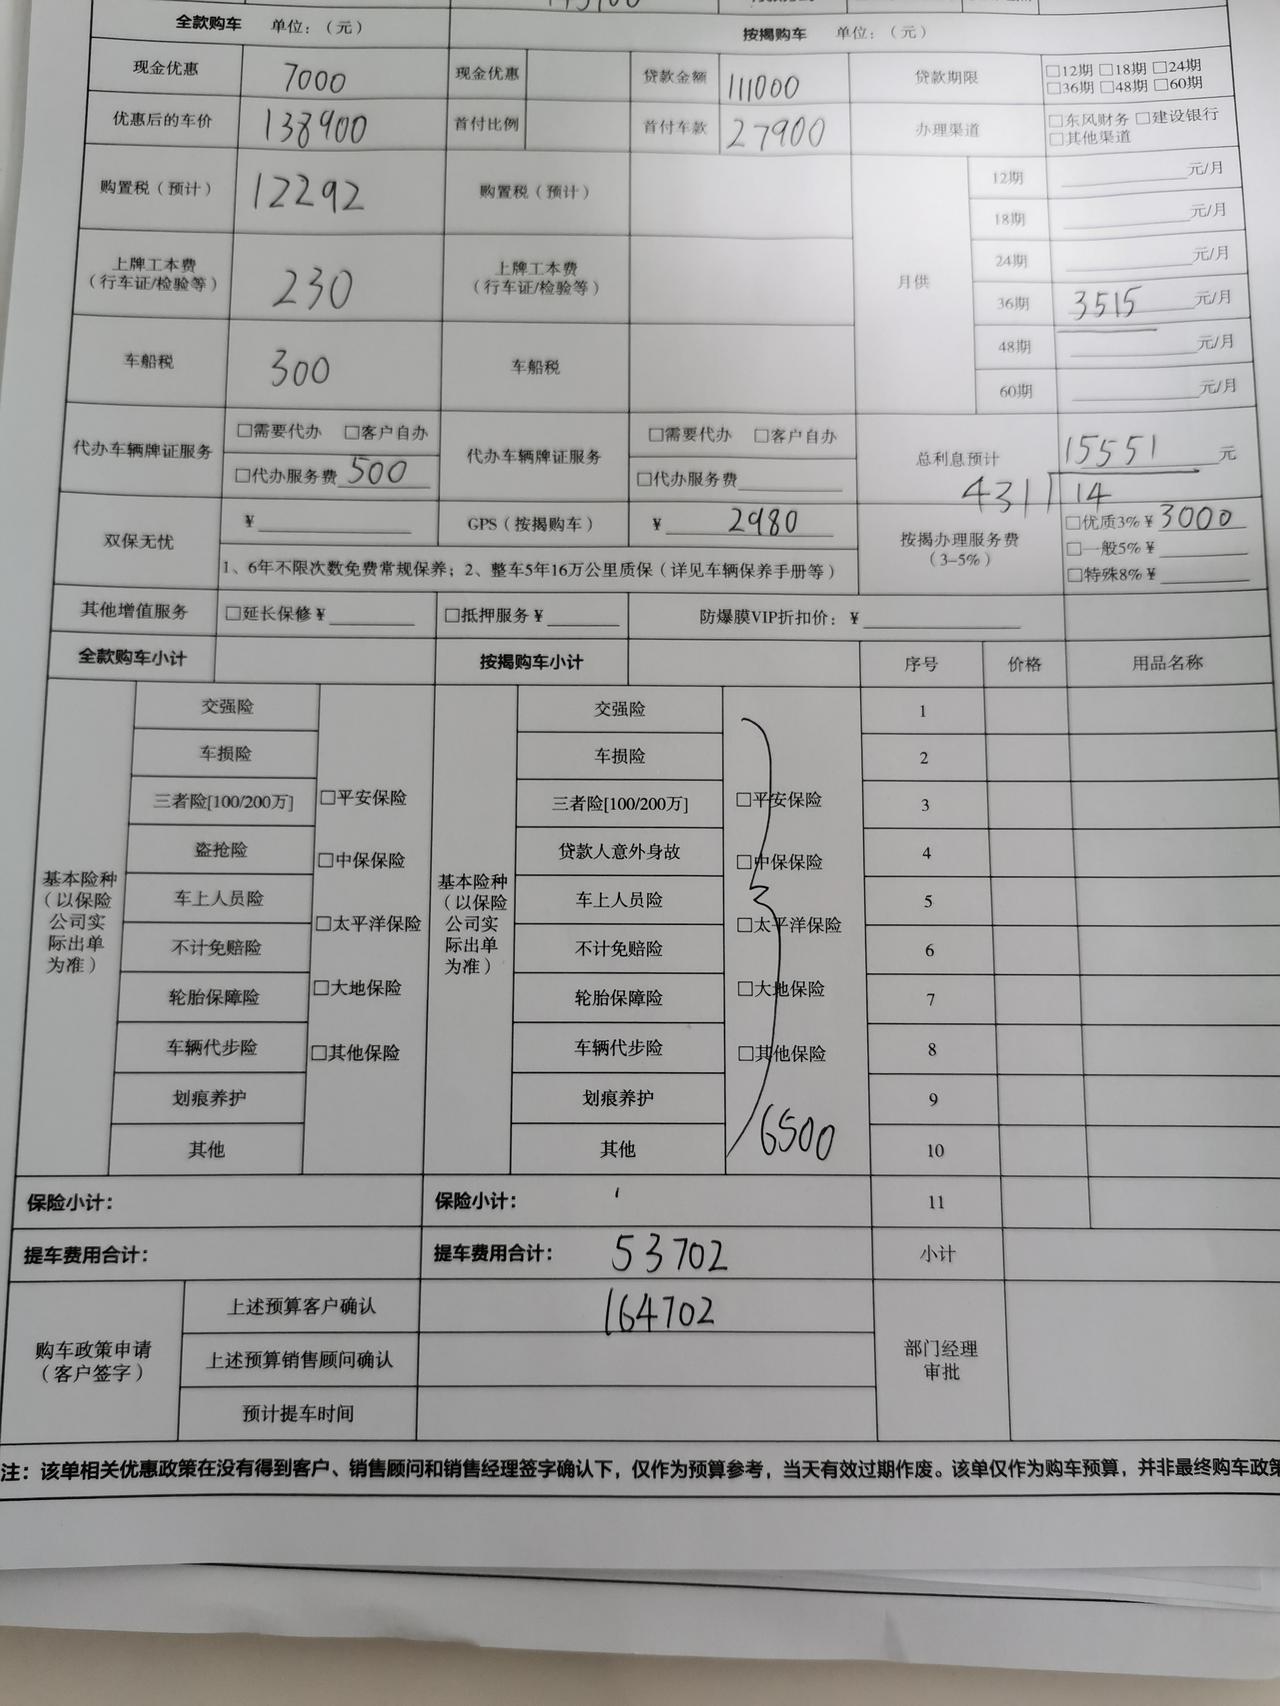 全款购车 单位：（元） 按揭购车 单位：（元）
现金优惠 7000 现金优惠 贷款金额 111000 贷款期限 □12期 □18期 □24期
□36期 □48期 □60期
优惠后的车价 138900 首付比例 首付车款 27900 办理渠道 □东风财务 □建设银行
□其他渠道
购置税（预计） 12292 购置税（预计） 月供 12期 元/月
18期 元/月
上牌工本费
（行车证/检验等） 230 上牌工本费
（行车证/检验等） 24期 元/月
36期 3515 元/月
车船税 300 车船税 48期 元/月
60期 元/月
代办车辆牌证服务 □需要代办 □客户自办 代办车辆牌证服务 □需要代办 □客户自办 总利息预计 15551 元
□代办服务费 500 □代办服务费 431 14
双保无忧 ¥ GPS（按揭购车） ¥ 2980 按揭办理服务费
（3–5%） □优质3%¥ 3000
□一般5%¥
□特殊8%¥
1、6年不限次数免费常规保养；2、整车5年16万公里质保（详见车辆保养手册等）
其他增值服务 □延长保修¥ □抵押服务¥ 防爆膜VIP折扣价：¥
全款购车小计 按揭购车小计 序号 价格 用品名称
基本险种
（以保险
公司实
际出单
为准）
交强险 交强险 1
车损险 车损险 2
三者险[100/200万] □平安保险 三者险[100/200万] □平安保险 3
盗抢险 □中保保险 贷款人意外身故 □中保保险 4
基本险种
（以保险
公司实
际出单
为准）
车上人员险 □太平洋保险 车上人员险 □太平洋保险 5
不计免赔险 不计免赔险 6
轮胎保障险 □大地保险 轮胎保障险 □大地保险 7
车辆代步险 □其他保险 车辆代步险 □其他保险 8
划痕养护 划痕养护 9
其他 其他 6500 10
保险小计： 保险小计： 11
提车费用合计： 提车费用合计： 53702 小计
购车政策申请
（客户签字） 上述预算客户确认 164702 部门经理
审批
上述预算销售顾问确认
预计提车时间
注：该单相关优惠政策在没有得到客户、销售顾问和销售经理签字确认下，仅作为预算参考，当天有效过期作废。该单仅作为购车预算，并非最终购车政策